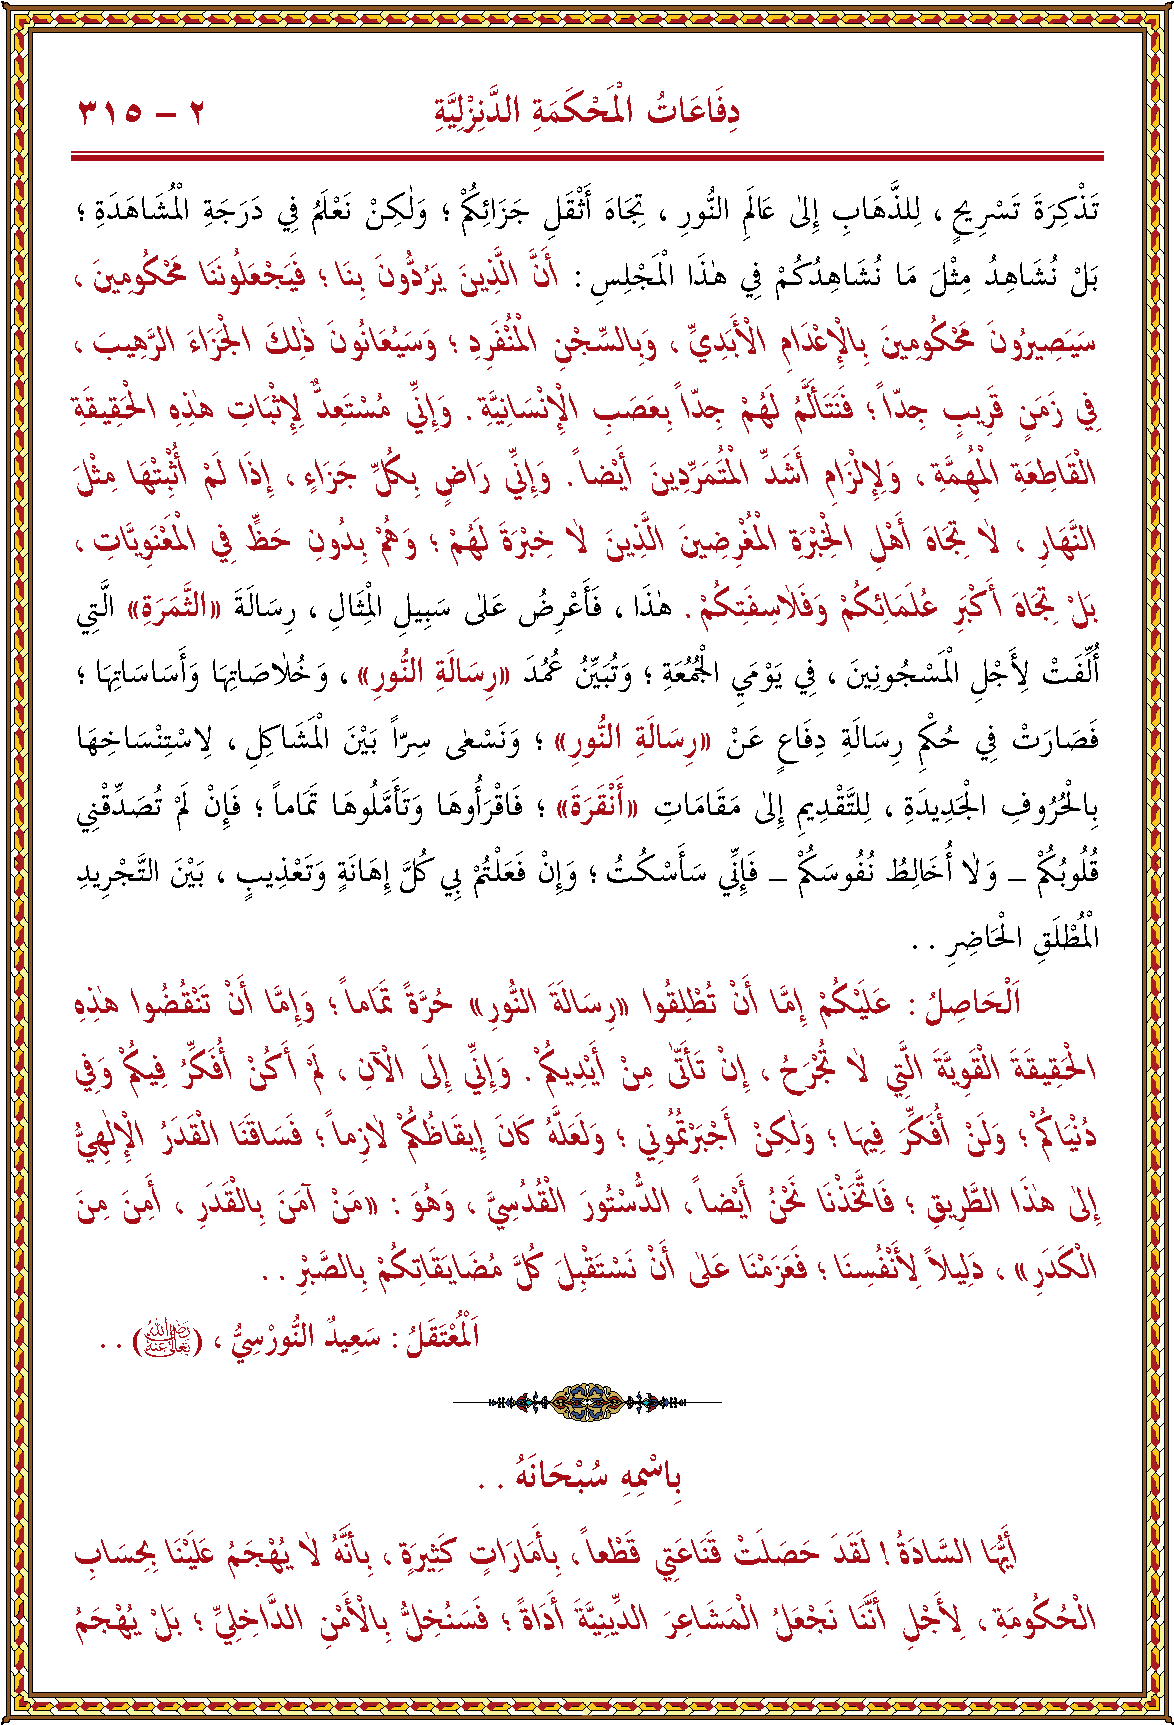 دِفَاعَاتُ الْمَحْكَمَةِ الدَّنِزْلِيَّةِ ٢ – ٣١٥
تَذْكِرَةَ تَسْرِيحٍ ، لِلذَّهَابِ إِلَى عَالَمِ النُّورِ ، تِجَاهَ أَثْقَلِ جَزَائِكُمْ ؛ وَلٰكِنْ نَعْلَمُ فِي دَرَجَةِ الْمُشَاهَدَةِ ؛
بَلْ نُشَاهِدُ مِثْلَ مَا نُشَاهِدُكُمْ فِي هٰذَا الْمَجْلِسِ : أَنَّ الَّذِينَ يَرُدُّونَ بِنَا ؛ فَيَجْعَلُونَنَا مَحْكُومِينَ ،
سَيَصِيرُونَ مَحْكُومِينَ بِالْإِعْدَامِ الْأَبَدِيِّ ، وَبِالسِّجْنِ الْمُنْفَرِدِ ؛ وَسَيُعَانُونَ ذٰلِكَ الْجَزَاءَ الرَّهِيبَ ،
فِي زَمَنٍ قَرِيبٍ جِدّاً ؛ فَنَتَأَلَّمُ لَهُمْ جِدّاً بِعَصَبِ الْإِنْسَانِيَّةِ . وَإِنِّي مُسْتَعِدٌّ لِإِثْبَاتِ هٰذِهِ الْحَقِيقَةِ
الْقَاطِعَةِ الْمُهِمَّةِ ، وَلِإِلْزَامِ أَشَدِّ الْمُتَمَرِّدِينَ أَيْضاً . وَإِنِّي رَاضٍ بِكُلِّ جَزَاءٍ ، إِذَا لَمْ أُثْبِتْهَا مِثْلَ
النَّهَارِ ، لَا تِجَاهَ أَهْلِ الْخِبْرَةِ الْمُغْرِضِينَ الَّذِينَ لَا خِبْرَةَ لَهُمْ ؛ وَهُمْ بِدُونِ حَظٍّ فِي الْمَعْنَوِيَّاتِ ،
بَلْ تِجَاهَ أَكْبَرِ عُلَمَائِكُمْ وَفَلَاسِفَتِكُمْ . هٰذَا ، فَأَعْرِضُ عَلٰى سَبِيلِ الْمِثَالِ ، رِسَالَةَ «الثَّمَرَةِ» الَّتِي
أُلِّفَتْ لِأَجْلِ الْمَسْجُونِينَ ، فِي يَوْمَيِ الْجُمُعَةِ ؛ وَتُبَيِّنُ عُمُدَ «رِسَالَةِ النُّورِ» ، وَخُلَاصَاتِهَا وَأَسَاسَاتِهَا ؛
فَصَارَتْ فِي حُكْمِ رِسَالَةِ دِفَاعٍ عَنْ «رِسَالَةِ النُّورِ» ؛ وَنَسْعٰى سِرّاً بَيْنَ الْمَشَاكِلِ ، لِاسْتِنْسَاخِهَا
بِالْحُرُوفِ الْجَدِيدَةِ ، لِلتَّقْدِيمِ إِلٰى مَقَامَاتِ «أَنْقَرَةَ» ؛ فَاقْرَأُوهَا وَتَأَمَّلُوهَا تَمَاماً ؛ فَإِنْ لَمْ تُصَدِّقْنِي
قُلُوبُكُمْ – وَلَا أُخَالِطُ نُفُوسَكُمْ – فَإِنِّي سَأَسْكُتُ ؛ وَإِنْ فَعَلْتُمْ بِي كُلَّ إِهَانَةٍ وَتَعْذِيبٍ ، بَيْنَ التَّجْرِيدِ
الْمُطْلَقِ الْحَاضِرِ . .
اَلْحَاصِلُ : عَلَيْكُمْ إِمَّا أَنْ تُطْلِقُوا «رِسَالَةَ النُّورِ» حُرَّةً تَمَاماً ؛ وَإِمَّا أَنْ تَنْقُضُوا هٰذِهِ
الْحَقِيقَةَ الْقَوِيَّةَ الَّتِي لَا تُجْرَحُ ، إِنْ تَأَتّٰى مِنْ أَيْدِيكُمْ . وَإِنِّي إِلَى الْآنِ ، لَمْ أَكُنْ أُفَكِّرُ فِيكُمْ وَفِي
دُنْيَاكُمْ ؛ وَلَنْ أُفَكِّرَ فِيهَا ؛ وَلٰكِنْ أَجْبَرْتُمُونِي ؛ وَلَعَلَّهُ كَانَ إِيقَاظُكُمْ لَازِماً ؛ فَسَاقَنَا الْقَدَرُ الْإِلٰهِيُّ
إِلٰى هٰذَا الطَّرِيقِ ؛ فَاتَّخَذْنَا نَحْنُ أَيْضاً ، الدُّسْتُورَ الْقُدُسِيَّ ، وَهُوَ : «مَنْ آمَنَ بِالْقَدَرِ ، أَمِنَ مِنَ
الْكَدَرِ» ، دَلِيلاً لِأَنْفُسِنَا ؛ فَعَزَمْنَا عَلٰى أَنْ نَسْتَقْبِلَ كُلَّ مُضَايَقَاتِكُمْ بِالصَّبْرِ . .
اَلْمُعْتَقَلُ : سَعِيدٌ النُّورْسِيُّ ، (رضي الله تعالى عنه) . .
بِاسْمِهِ سُبْحَانَهُ . .
أَيُّهَا السَّادَةُ ! لَقَدْ حَصَلَتْ قَنَاعَتِي قَطْعاً ، بِأَمَارَاتٍ كَثِيرَةٍ ، بِأَنَّهُ لَا يُهْجَمُ عَلَيْنَا بِحِسَابِ
الْحُكُومَةِ ، لِأَجْلِ أَنَّنَا نَجْعَلُ الْمَشَاعِرَ الدِّينِيَّةَ أَدَاةً ؛ فَسَنُخِلُّ بِالْأَمْنِ الدَّاخِلِيِّ ؛ بَلْ يُهْجَمُ